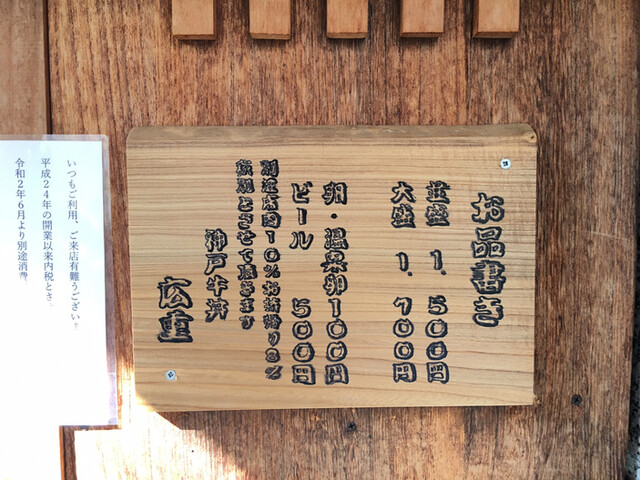 お品書き
並盛 1.500円
大盛 1.700円
卵・温泉卵100円
ビール 500円
別途店内10％お持帰り8％
税別とさせて頂きます
神戸牛丼
広重
いつもご利用、ご来店有難うござい
平成24年の開業以来内税とさ
令和2年6月より別途消費